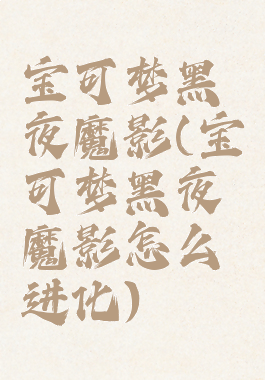 宝可梦黑
夜魔影(宝
可梦黑夜
魔影怎么
进化)